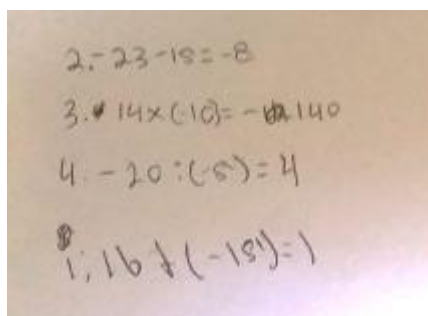 2. -23-15=-8
3. 14x(-10)=-140
4. -20:(-5)=4
1. 16+(-15)=1